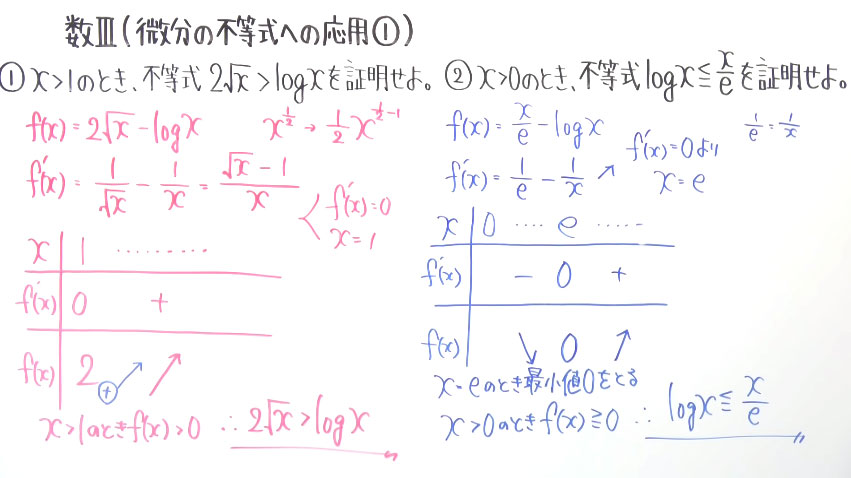 数Ⅲ(微分の不等式への応用①)
① x>1のとき、不等式 2√x>logxを証明せよ。
f(x)=2√x-logx
x^{1/2}→1/2 x^{1/2-1}
f'(x)=1/√x-1/x=(√x-1)/x
f'(x)=0
x=1
x 1 ………
f'(x) 0 +
f(x) 2 ⊕↗ ↗
x>1のときf(x)>0 ∴2√x>logx
② x>0のとき、不等式logx≦x/eを証明せよ。
f(x)=x/e-logx
1/e=1/x
f'(x)=1/e-1/x ↗
f'(x)=0より
x=e
x 0 …. e …..
f'(x) - 0 +
f(x) ↘ 0 ↗
x=eのとき最小値0をとる
x>0のときf(x)≧0 ∴logx≦x/e